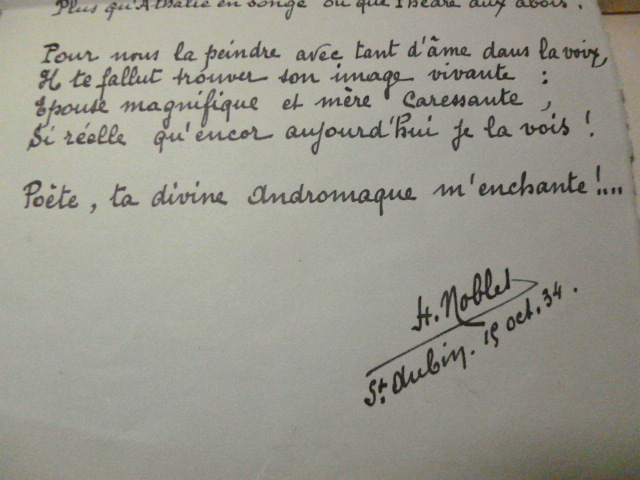 Plus qu'Athalie en songe ou que Phèdre aux abois !
Pour nous la peindre avec tant d'âme dans la voix,
Il te fallut trouver son image vivante :
Epouse magnifique et mère caressante,
Si réelle qu'encor aujourd'hui je la vois !
Poëte, ta divine Andromaque m'enchante !...
H. Nobles
St. Aubin. 15 oct. 34.